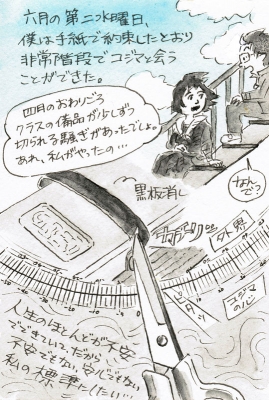 六月の第二水曜日、
僕は手紙で約束したとおり
非常階段でコジマと会う
ことができた。
四月のおわりごろ
クラスの備品が少しずつ
切られる騒ぎがあったでしょ。
あれ、私がやったの…
なんで?
黒板消し
外界
コジマ
の心
人生のほとんどが不安
でできていて、だから
不安でもない、安心でもない
私の標準にしたい…